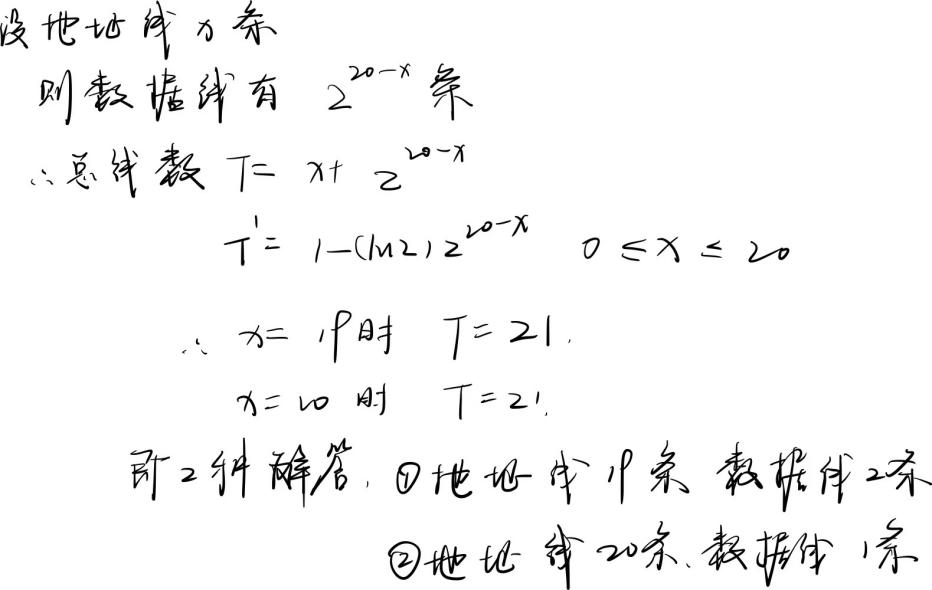 设地址线x条
则数据线有 2^{20-x} 条
∴总线数 T= x+ 2^{20-x}
T'= 1-(ln2)2^{20-x} 0≤x≤20
∴ x=19时 T=21.
x=20时 T=21.
所2种解答. ①地址线19条 数据线2条
②地址线20条、数据线1条